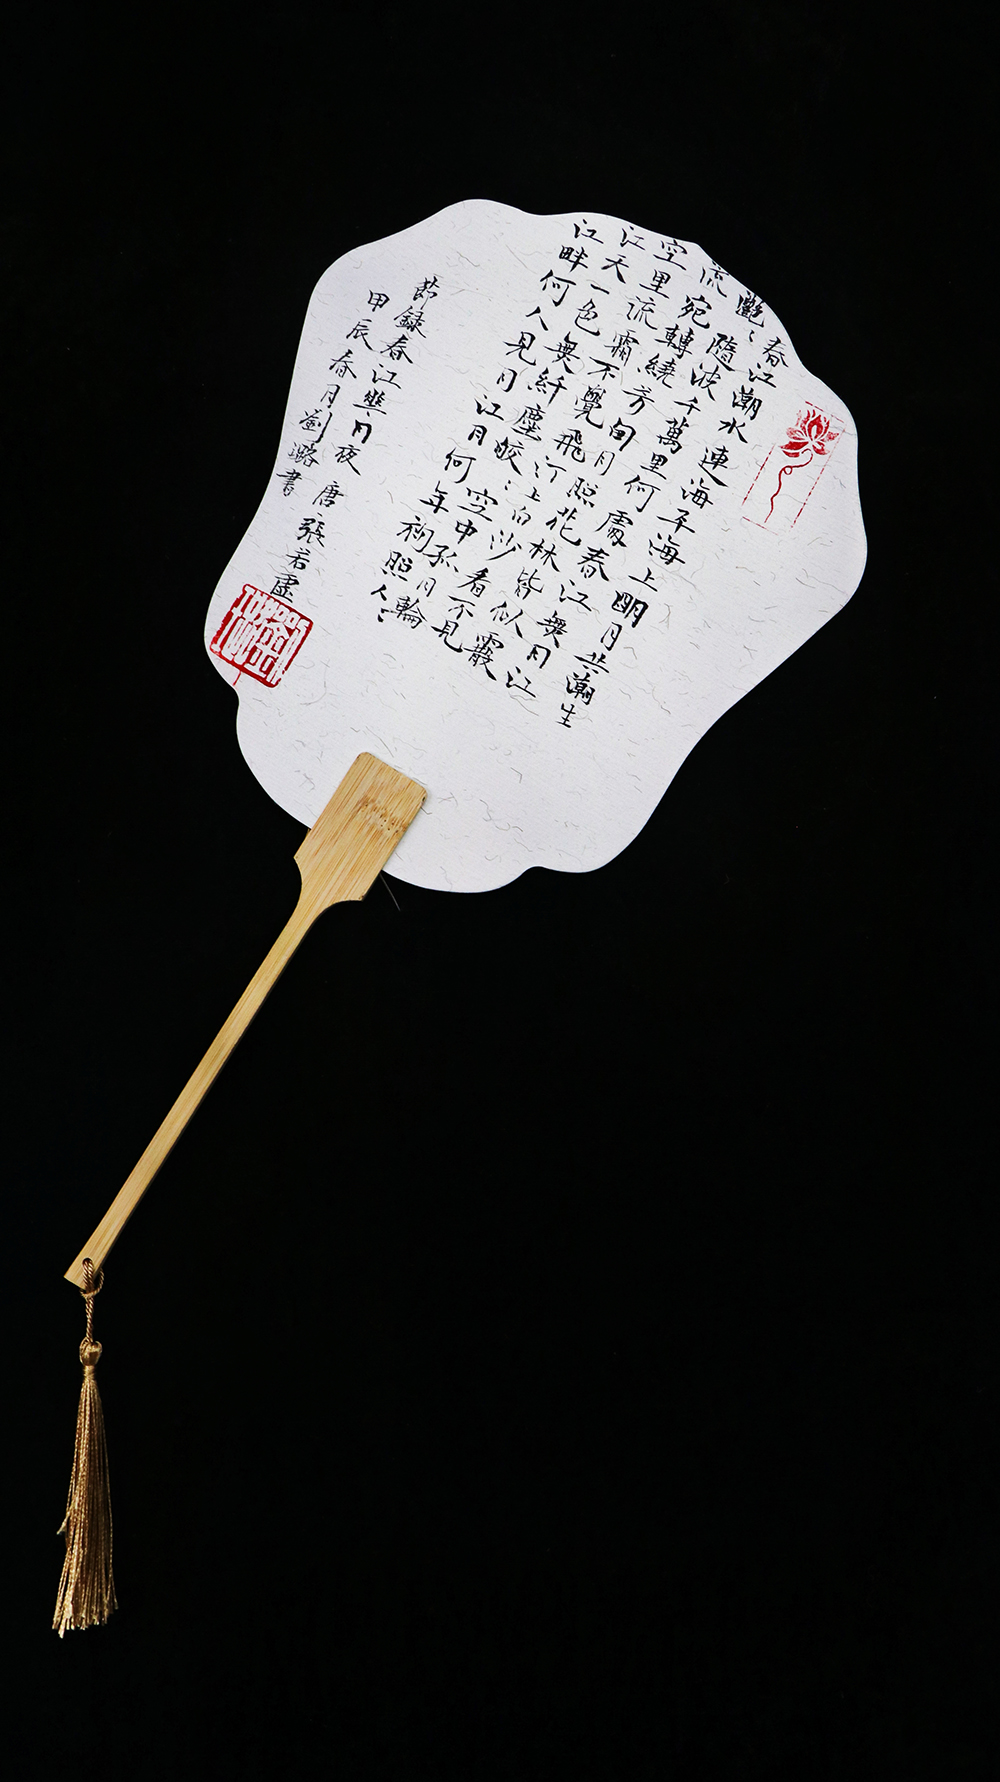 春江潮水連海平海上明月共潮生
灩〻隨波千萬里何處春江無月江
流宛轉繞芳甸月照花林皆似霰
空里流霜不覺飛汀上白沙看不見
江天一色無纤塵皎〻空中孤月輪
江畔何人見月江月何年初照人〻
節録春江花月夜 唐 張若虛
甲辰春月劉璐書